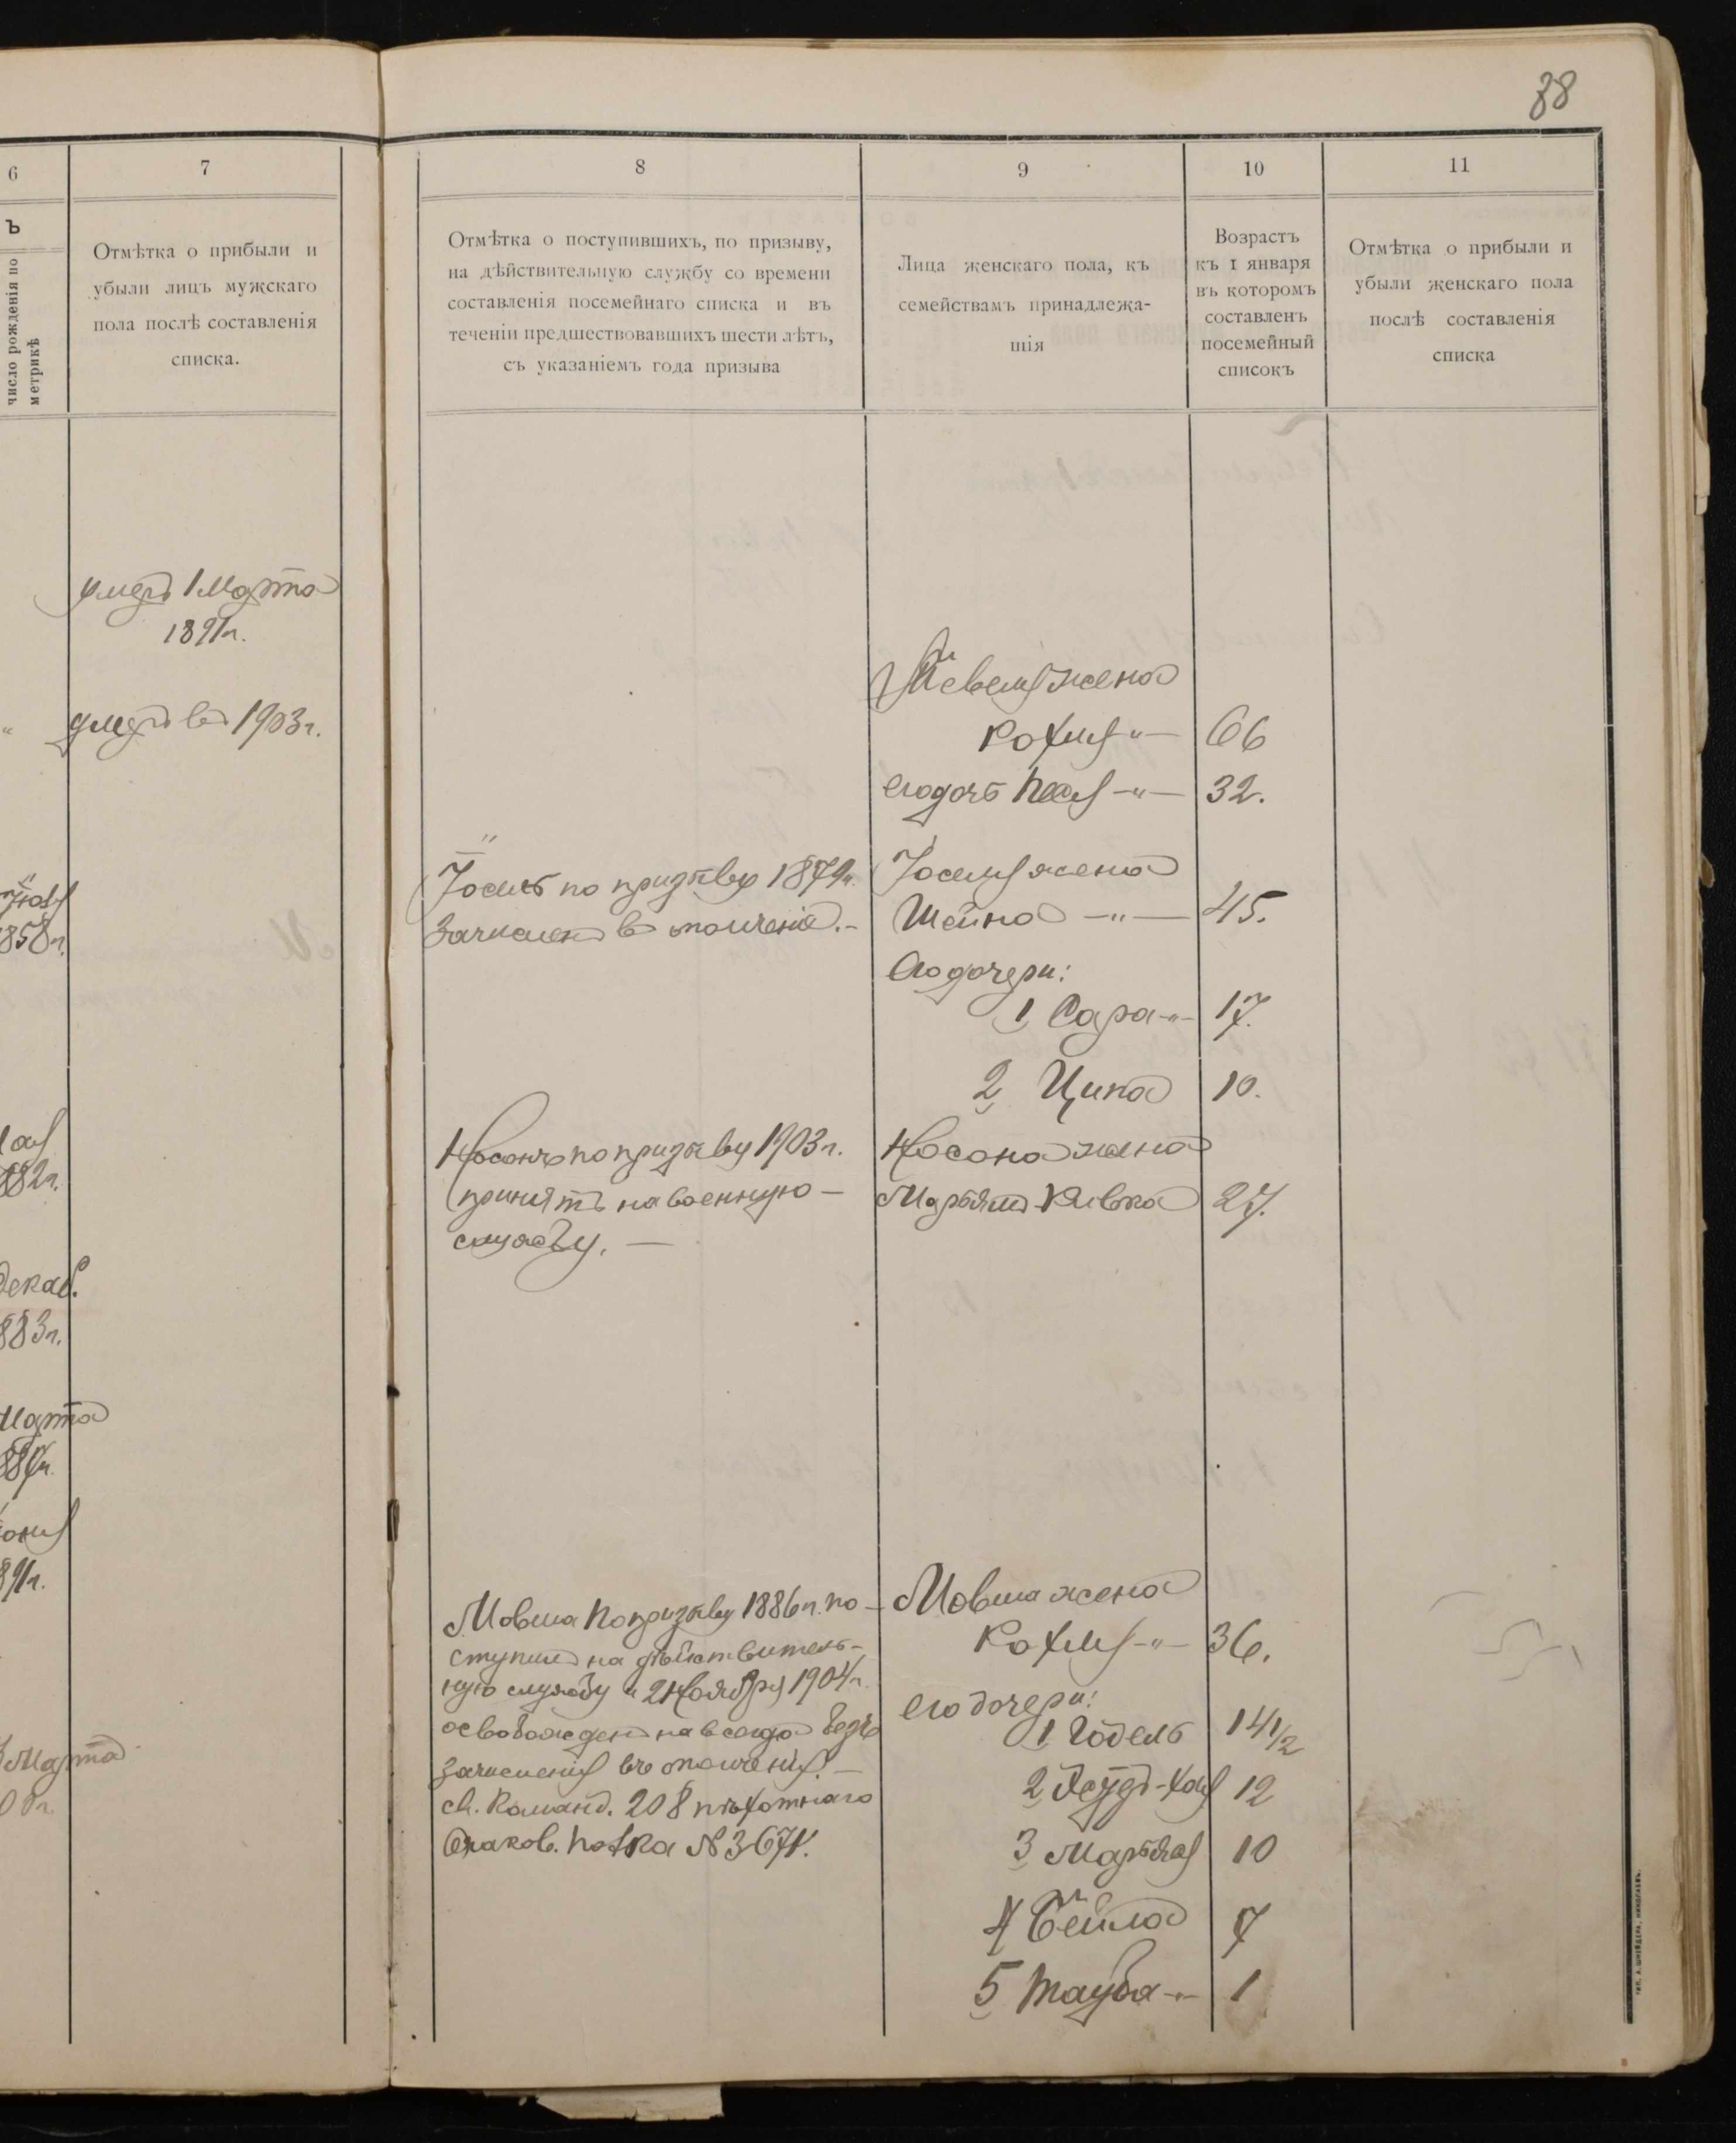 38
6
7
8
9
10
11
ъ
число рожденія по
метрикѣ
Отмѣтка о прибыли и
убыли лицъ мужскаго
пола послѣ составленія
списка.
Отмѣтка о поступившихъ, по призыву,
на дѣйствительную службу со времени
составленія посемейнаго списка и въ
теченіи предшествовавшихъ шести лѣтъ,
съ указаніемъ года призыва
Лица женскаго пола, къ
семействамъ принадлежа-
щія
Возрастъ
къ 1 января
въ которомъ
составленъ
посемейный
списокъ
Отмѣтка о прибыли и
убыли женскаго пола
послѣ составленія
списка
умеръ 1 Марта
1891 г.
умеръ въ 1903 г.
жена
Рохля -"- 66
его дочь Песя -"- 32.
Іосель по призыву 1879 г.
зачисленъ въ ополченіе.-
Іоселя жена
Шейна -"- 45.
Его дочери:
1 Сара -"- 17.
2 Ципа 10.
858 г.
Носонъ по призыву 1903 г.
принятъ на военную -
службу. -
Носона жена
Марьямъ-Ривка 27.
882 г.
Декаб.
883 г.
Марта
887 г.
891 г.
Марта
Мовша по призыву 1886 г. по-
ступилъ на дѣйствитель-
ную службу и 2 Ноября 1904 г.
освобожденъ навсегда безъ
зачисленія въ ополченія. -
св. Команд. 208 пѣхотнаго
Очаков. полка № 3671.
Мовша жена
Рохля -"- 36.
его дочери:
1 Годель 14 1/2
2 Хая 12
3 Марьяя 10
4 Бейла 7
5 Тауба -"- 1
тип. А. Шнейдера, Николаевъ.